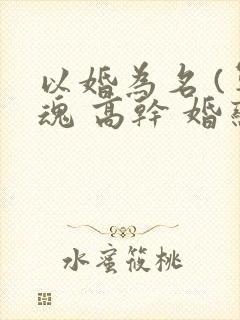 以婚為名(
魂 高幹 婚
水蜜筱桃